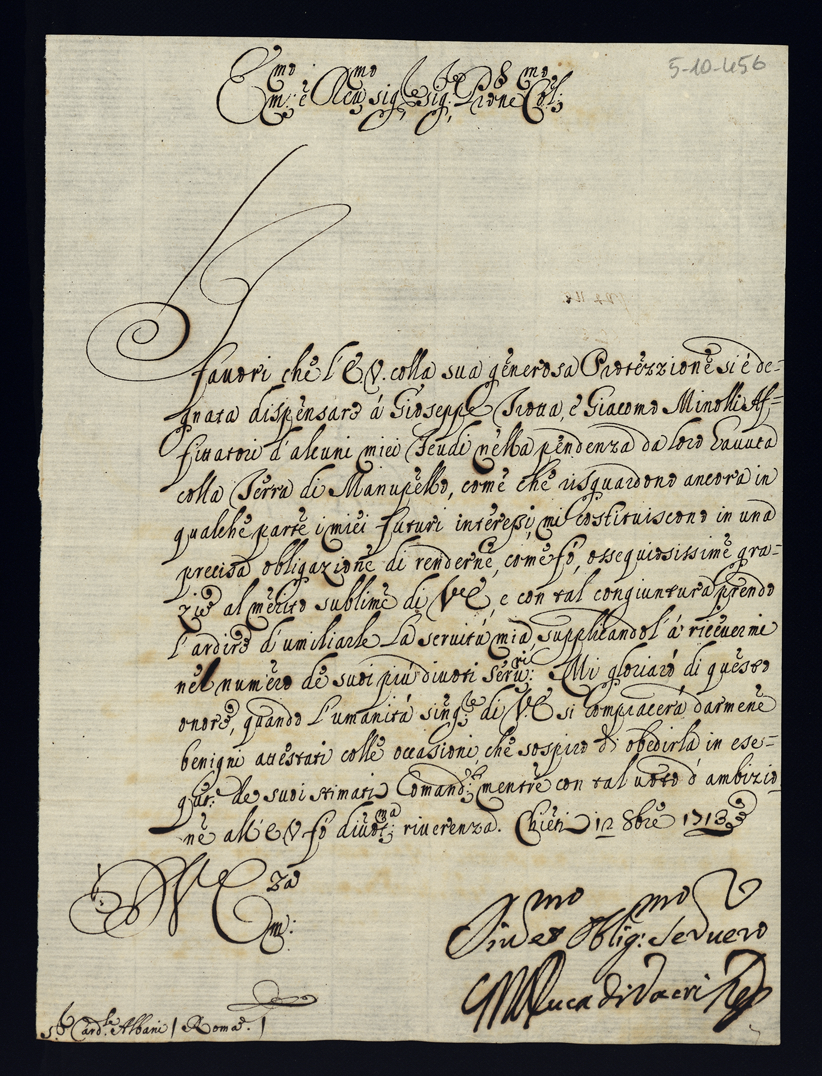 5-10-456
Em:mo è Reu:mo sig:re sig:re P̃rone Col:mo
I
fauori chè l'E. V. colla sua gènerosa Protèzzionè si è de=
gnata dispènsarè á Giosèppè Troua, è Giacomo Minolli Af=
fittatori d'alcuni miei Feudi nèlla pèndenza da loro hauuta
colla Tèrra di Manupèllo, comè chè risguardono ancora in
qualchè partè i mièi futuri interèssi, mi costituiscono in una
precisa obligazionè di renderne, comè fò, ossequiosissimè gra=
ziè al mèrito sublimè di V.E., e con tal congiuntura prendo
l'ardirè d'umiliarlè La seruitú mia supplicandol'á ricèuermi
nèl numèro dè suoi piú diuoti sèru:ri Mi gloriarò di quèsto
onorè, quando L'umanitá sing:re di V.E. si compiacerá darmenè
benigni attèstati collè occasioni chè sospiro di obedirla in ese=
qut: de suoi stimati Comand:ti mentrè con tal uoto d'ambizio
nè all'E. V. fò diuot:ma riuerenza. Chièti 12 8brè 1713
V. E.za
Em:
Diu:mo et Oblig:mo seruuero
Duca di Vacri
S:r Card:le Albani / Roma. /